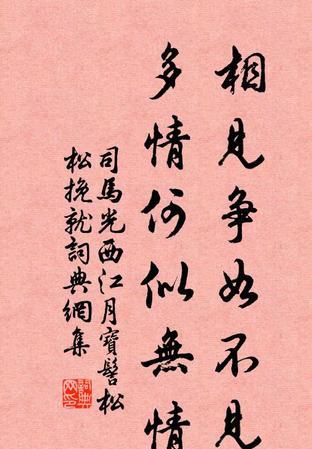 相見爭如不見
多情何似無情
司馬光西江月寶髻松
松挽就詞典網集